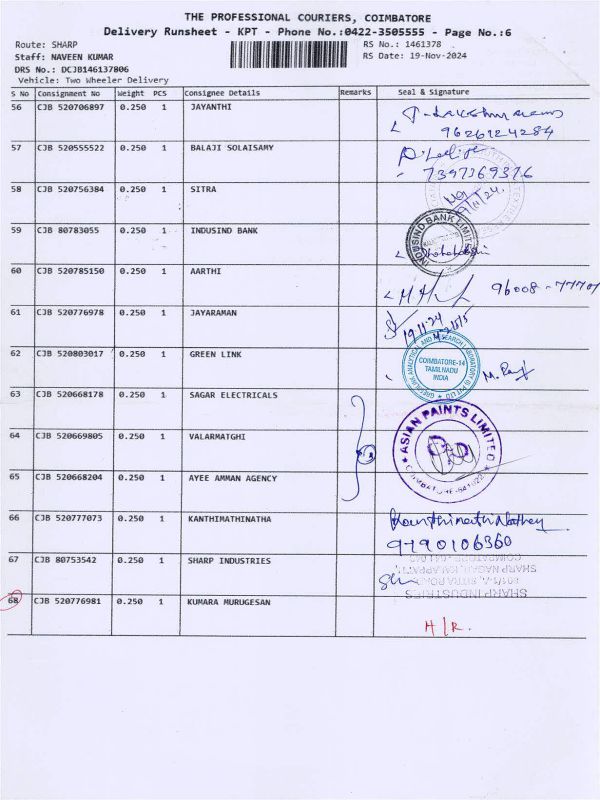 THE PROFESSIONAL COURIERS, COIMBATORE
Delivery Runsheet - KPT - Phone No.:0422-3505555 - Page No.:6
Route: SHARP
RS No.: 1461378
Staff: NAVEEN KUMAR
RS Date: 19-Nov-2024
DRS No.: DCJB146137806
Vehicle: Two Wheeler Delivery
S No Consignment No Weight PCS Consignee Details Remarks Seal & Signature
56 CJB 520706897 0.250 1 JAYANTHI
9626124284
57 CJB 520555522 0.250 1 BALAJI SOLAISAMY
7397369376
58 CJB 520756384 0.250 1 SITRA
59 CJB 80783055 0.250 1 INDUSIND BANK
INDUSIND BANK LIMITED
60 CJB 520785150 0.250 1 AARTHI
96008-77701
61 CJB 520776978 0.250 1 JAYARAMAN
19.11.24
62 CJB 520803017 0.250 1 GREEN LINK
GREENLINK ANALYTICAL AND RESEARCH LABORATORY (I) PVT LTD
COIMBATORE-14
TAMILNADU
INDIA
63 CJB 520668178 0.250 1 SAGAR ELECTRICALS
64 CJB 520669805 0.250 1 VALARMATGHI
ASIAN PAINTS LIMITED
COIMBATORE-641022
65 CJB 520668204 0.250 1 AYEE AMMAN AGENCY
66 CJB 520777073 0.250 1 KANTHIMATHINATHA
9790106360
67 CJB 80753542 0.250 1 SHARP INDUSTRIES
SHARP INDUSTRIES
68 CJB 520776981 0.250 1 KUMARA MURUGESAN
H/R.